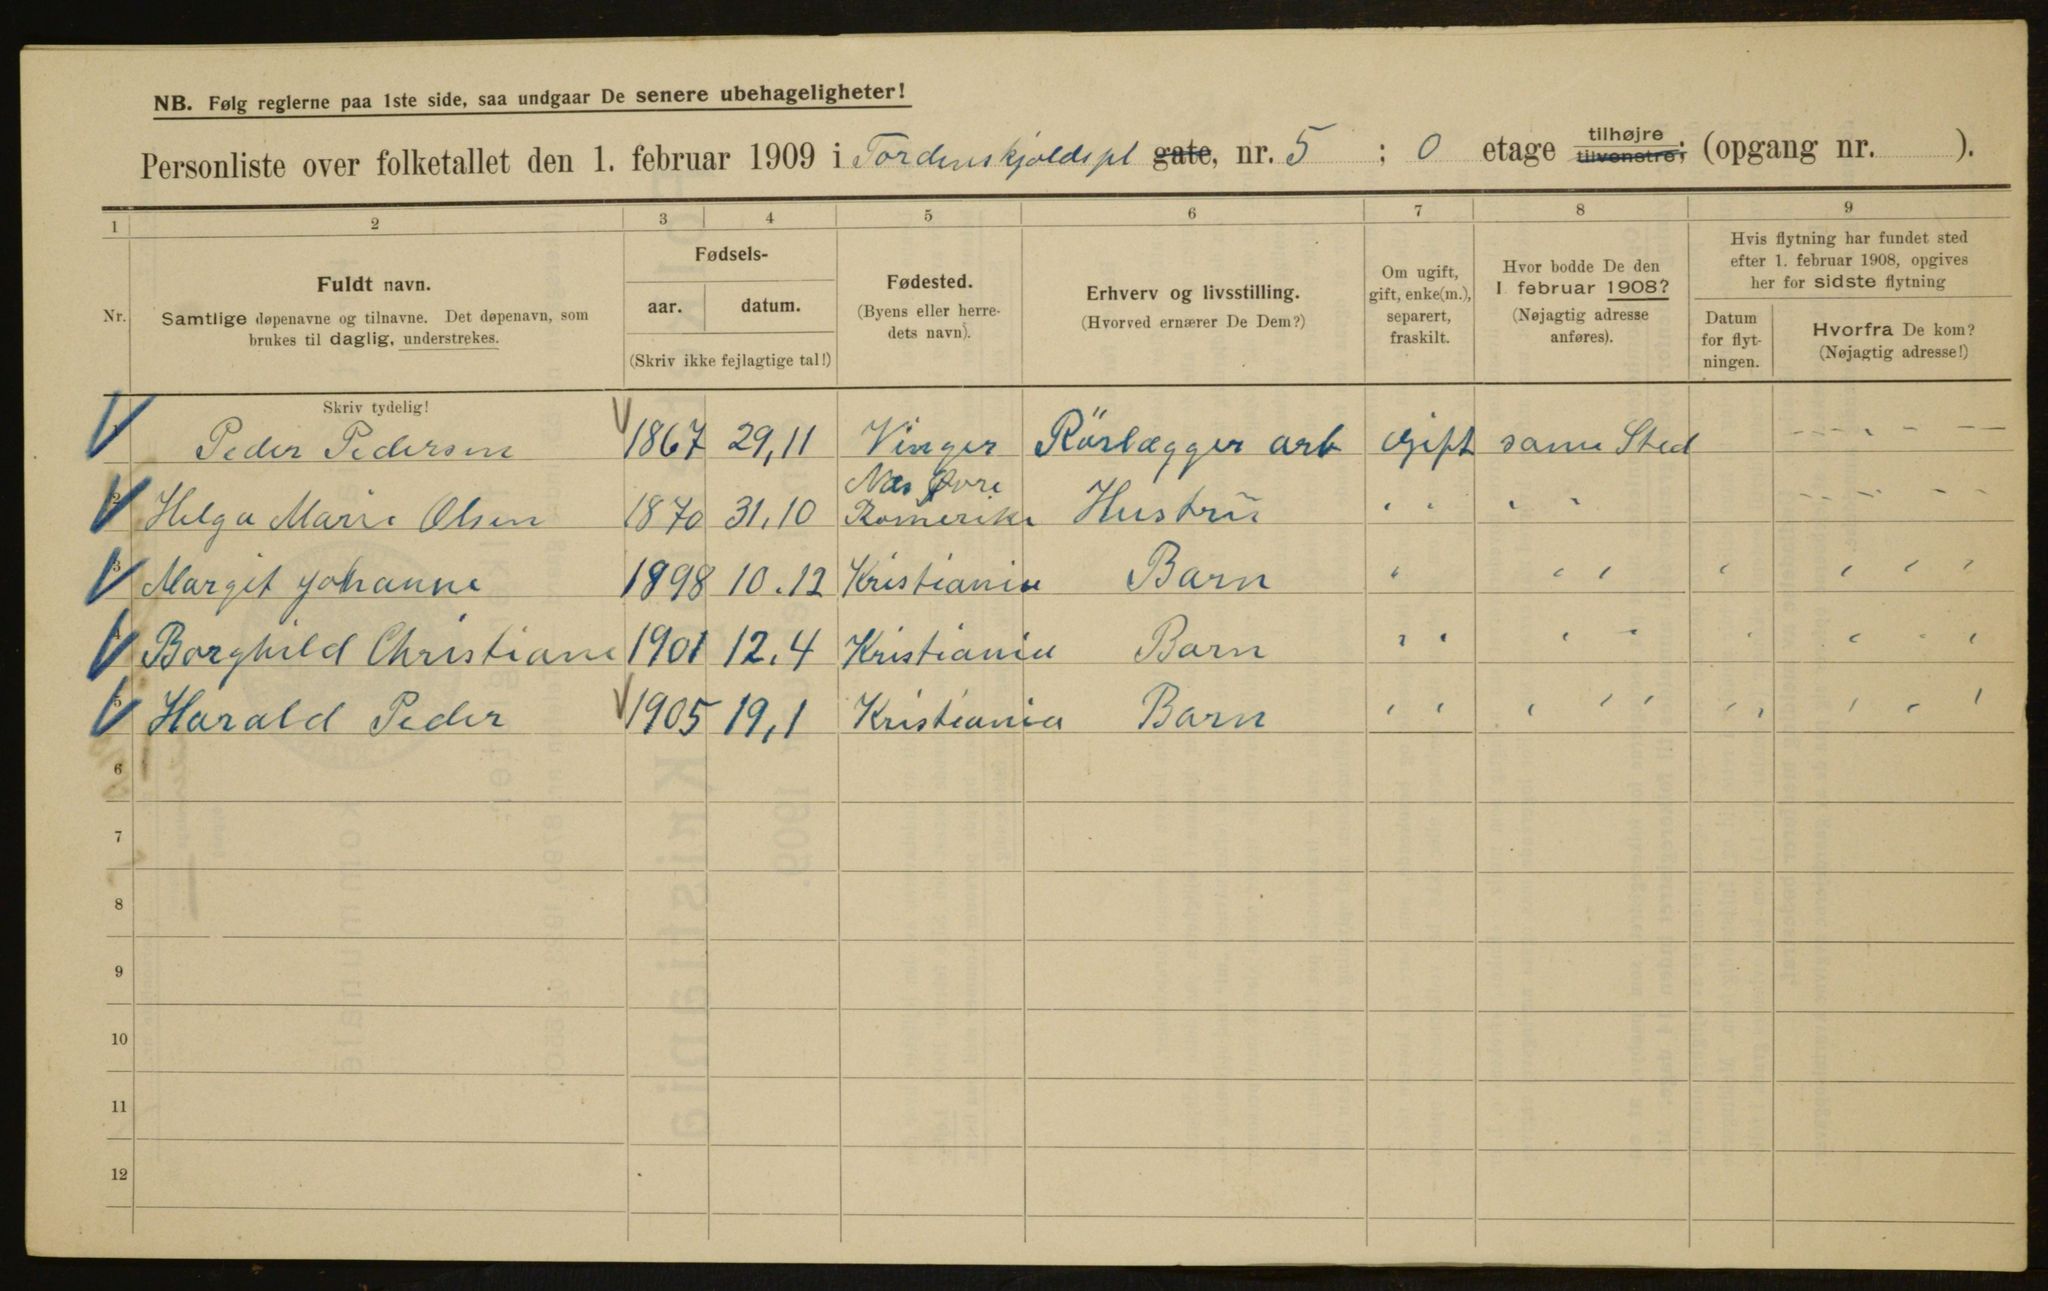 NB. Følg reglerne paa 1ste side, saa undgaar De senere ubehageligheter!
Personliste over folketallet den 1. februar 1909 i Tordenskjoldspl gate, nr. 5 ; 0 etage tilhøjre tilvenstre; (opgang nr. ).
1 2 3 4 5 6 7 8 9
Nr.
Fuldt navn.
Samtlige døpenavne og tilnavne. Det døpenavn, som
brukes til daglig, understrekes.
Fødsels-
aar. datum.
(Skriv ikke fejlagtige tal!)
Fødested.
(Byens eller herre-
dets navn).
Erhverv og livsstilling.
(Hvorved ernærer De Dem?)
Om ugift,
gift, enke(m.),
separert,
fraskilt.
Hvor bodde De den
1 februar 1908?
(Nøjagtig adresse
anføres).
Hvis flytning har fundet sted
efter 1. februar 1908, opgives
her for sidste flytning
Datum
for flyt-
ningen.
Hvorfra De kom?
(Nøjagtig adresse!)
Skriv tydelig!
Peder Pedersen 1867 29,11 Vinger Rörlægger arb Gift same Sted — — — — —
Næs Øvre
2 Helga Marie Olsen 1870 31.10 Romerike Hustrü " " " " — — — —
3 Margit Johanne 1898 10.12 Kristiania Barn " " " " " " "
4 Borghild Christiane 1901 12.4 Kristiania Barn " " " " " " " "
5 Harald Peder 1905 19,1 Kristiania Barn " " " " " " " " " "
6
7
8
9
10
11
12